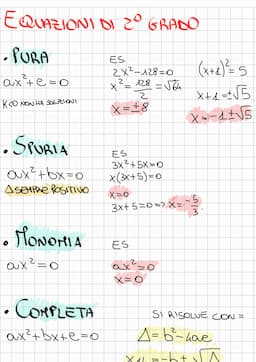 EQUAZIONI DI 2° GRADO
• PURA
ax²+c=0
K<0 NON HA SOLUZIONI
ES
2x²-128=0
x²=128/2=√64
x=±8
(x+1)²=5
x+1=±√5
x=-1±√5
• SPURIA
ax²+bx=0
Δ SEMPRE POSITIVO
ES
3x²+5x=0
x(3x+5)=0
x=0
3x+5=0=>x=-5/3
• MONOMIA
ax²=0
ES
ax²=0
x=0
• COMPLETA
ax²+bx+c=0
SI RISOLVE CON=
Δ=b²-4ac